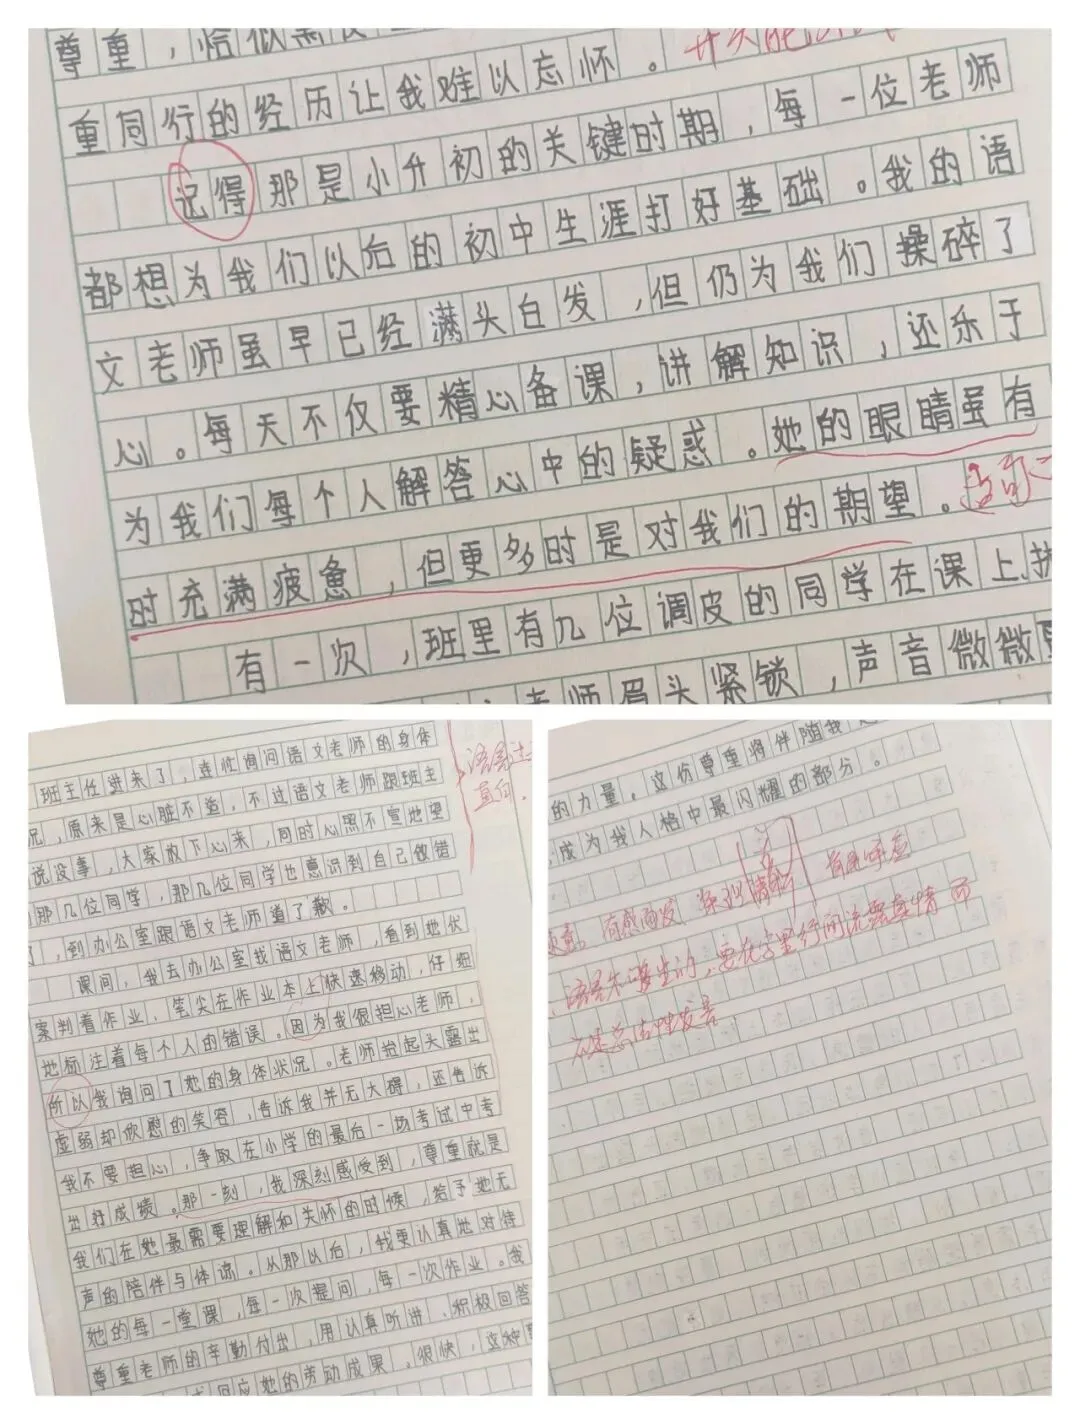 尊重，恰似
重同行的经历让我难以忘怀。
记得那是小升初的关键时期，每一位老师
都想为我们以后的初中生涯打好基础。我的语
文老师虽早已经满头白发，但仍为我们操碎了
心。每天不仅要精心备课，讲解知识，还乐于
为我们每个人解答心中的疑惑。她的眼睛虽有
时充满疲惫，但更多时是对我们的期望。
有一次，班里有几位调皮的同学在课上
老师眉头紧锁，声音微微
班主任进来了，连忙询问语文老师的身体
况，原来是心脏不适，不过语文老师跟班主
说没事，大家放下心来，同时心照不宣地望
那几位同学，那几位同学也意识到自己做错
了，到办公室跟语文老师道了歉。
课间，我去办公室找语文老师，看到她伏
案判着作业，笔尖在作业本上快速移动，仔细
地标注着每个人的错误。因为我很担心老师，
所以我询问了她的身体状况。老师抬起头露出
虚弱却欣慰的笑容，告诉我并无大碍，还告诉
我不要担心，争取在小学的最后一场考试中考
出好成绩。那一刻，我深刻感受到，尊重就是
我们在她最需要理解和关怀的时候，给予她无
声的陪伴与体谅。从那以后，我更认真地对待
她的每一堂课，每一次提问，每一次作业。我
尊重老师的辛勤付出，用认真听讲、积极回答
回应她的劳动成果。很快，这种
的力量。这份尊重将伴随我
成为我人格中最闪耀的部分。
有感而发